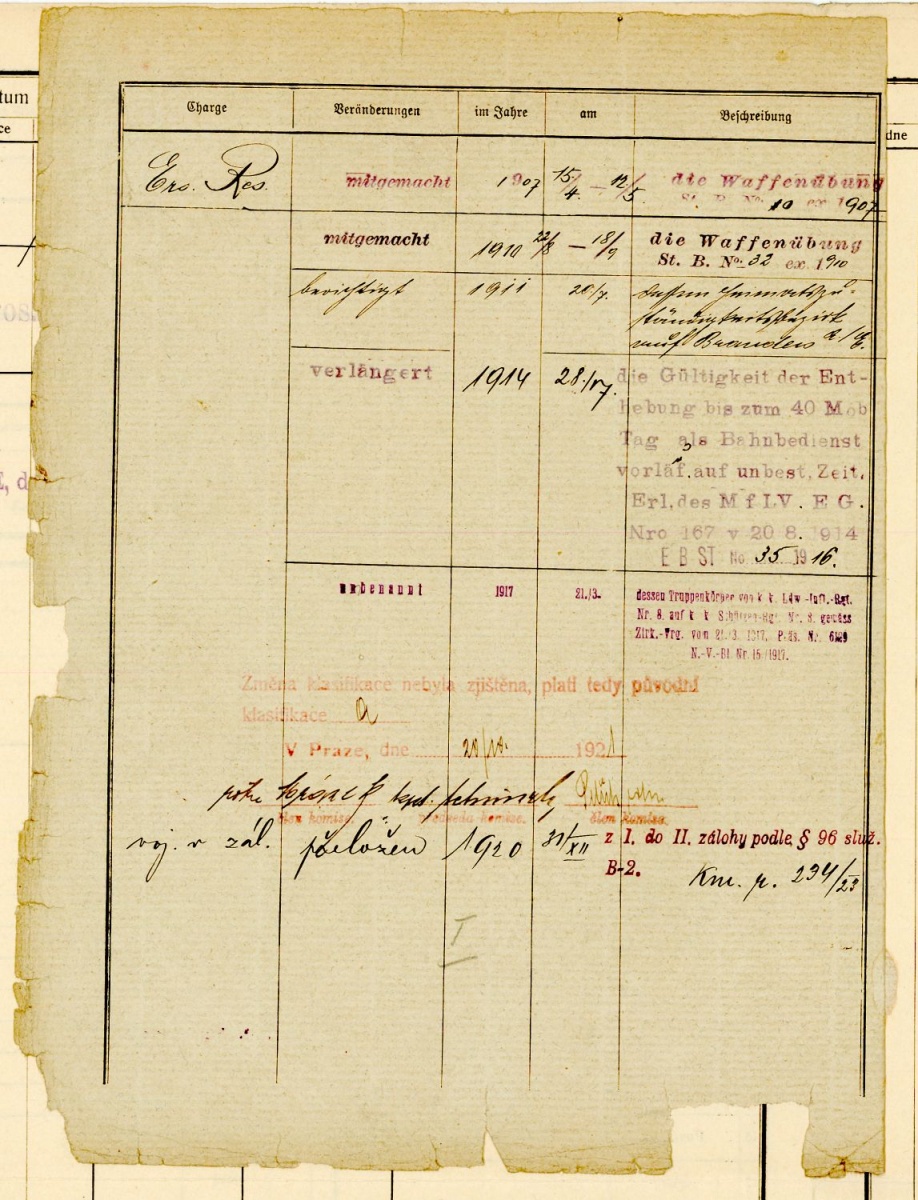 Charge Veränderungen im Jahre am Beschreibung
Ers. Res. mitgemacht 1907 15/4. – 12/5 die Waffenübung
St. B. No. 10 ex 1907
mitgemacht 1910 22/8 – 18/9 die Waffenübung
St. B. No. 32 ex 1910
berichtigt 1911 20/7. dessen Heimatszu-
ständigkeitsbezirk
auf Brandeis a./E.
verlängert 1914 28./17. die Gültigkeit der Ent-
hebung bis zum 40 Mob
Tag als Bahnbedienst
vorläf. auf unbest. Zeit.
Erl. des M f LV. E G.
Nro 167 v 20 8. 1914
E B ST No 35 1916.
umbenannt 1917 21./3. dessen Truppenkörper von k. k. Ldw.-Inft.-Rgt.
Nr. 8. auf k k Schützen-Rgt. Nr. 8. gemäss
Zirk.-Vrg. vom 21./3. 1917, Präs. Nr. 6129
N.-V.-Bl. Nr. 15/1917.
Změna klasifikace nebyla zjištěna, platí tedy původní
klasifikace a
V Praze, dne 1921
člen komise. předseda komise. člen komise.
voj. v zál. přeložen 1920 31/XII z I. do II. zálohy podle § 96 služ.
B-2. Km. p. 234/23
I
tum
ce
dne